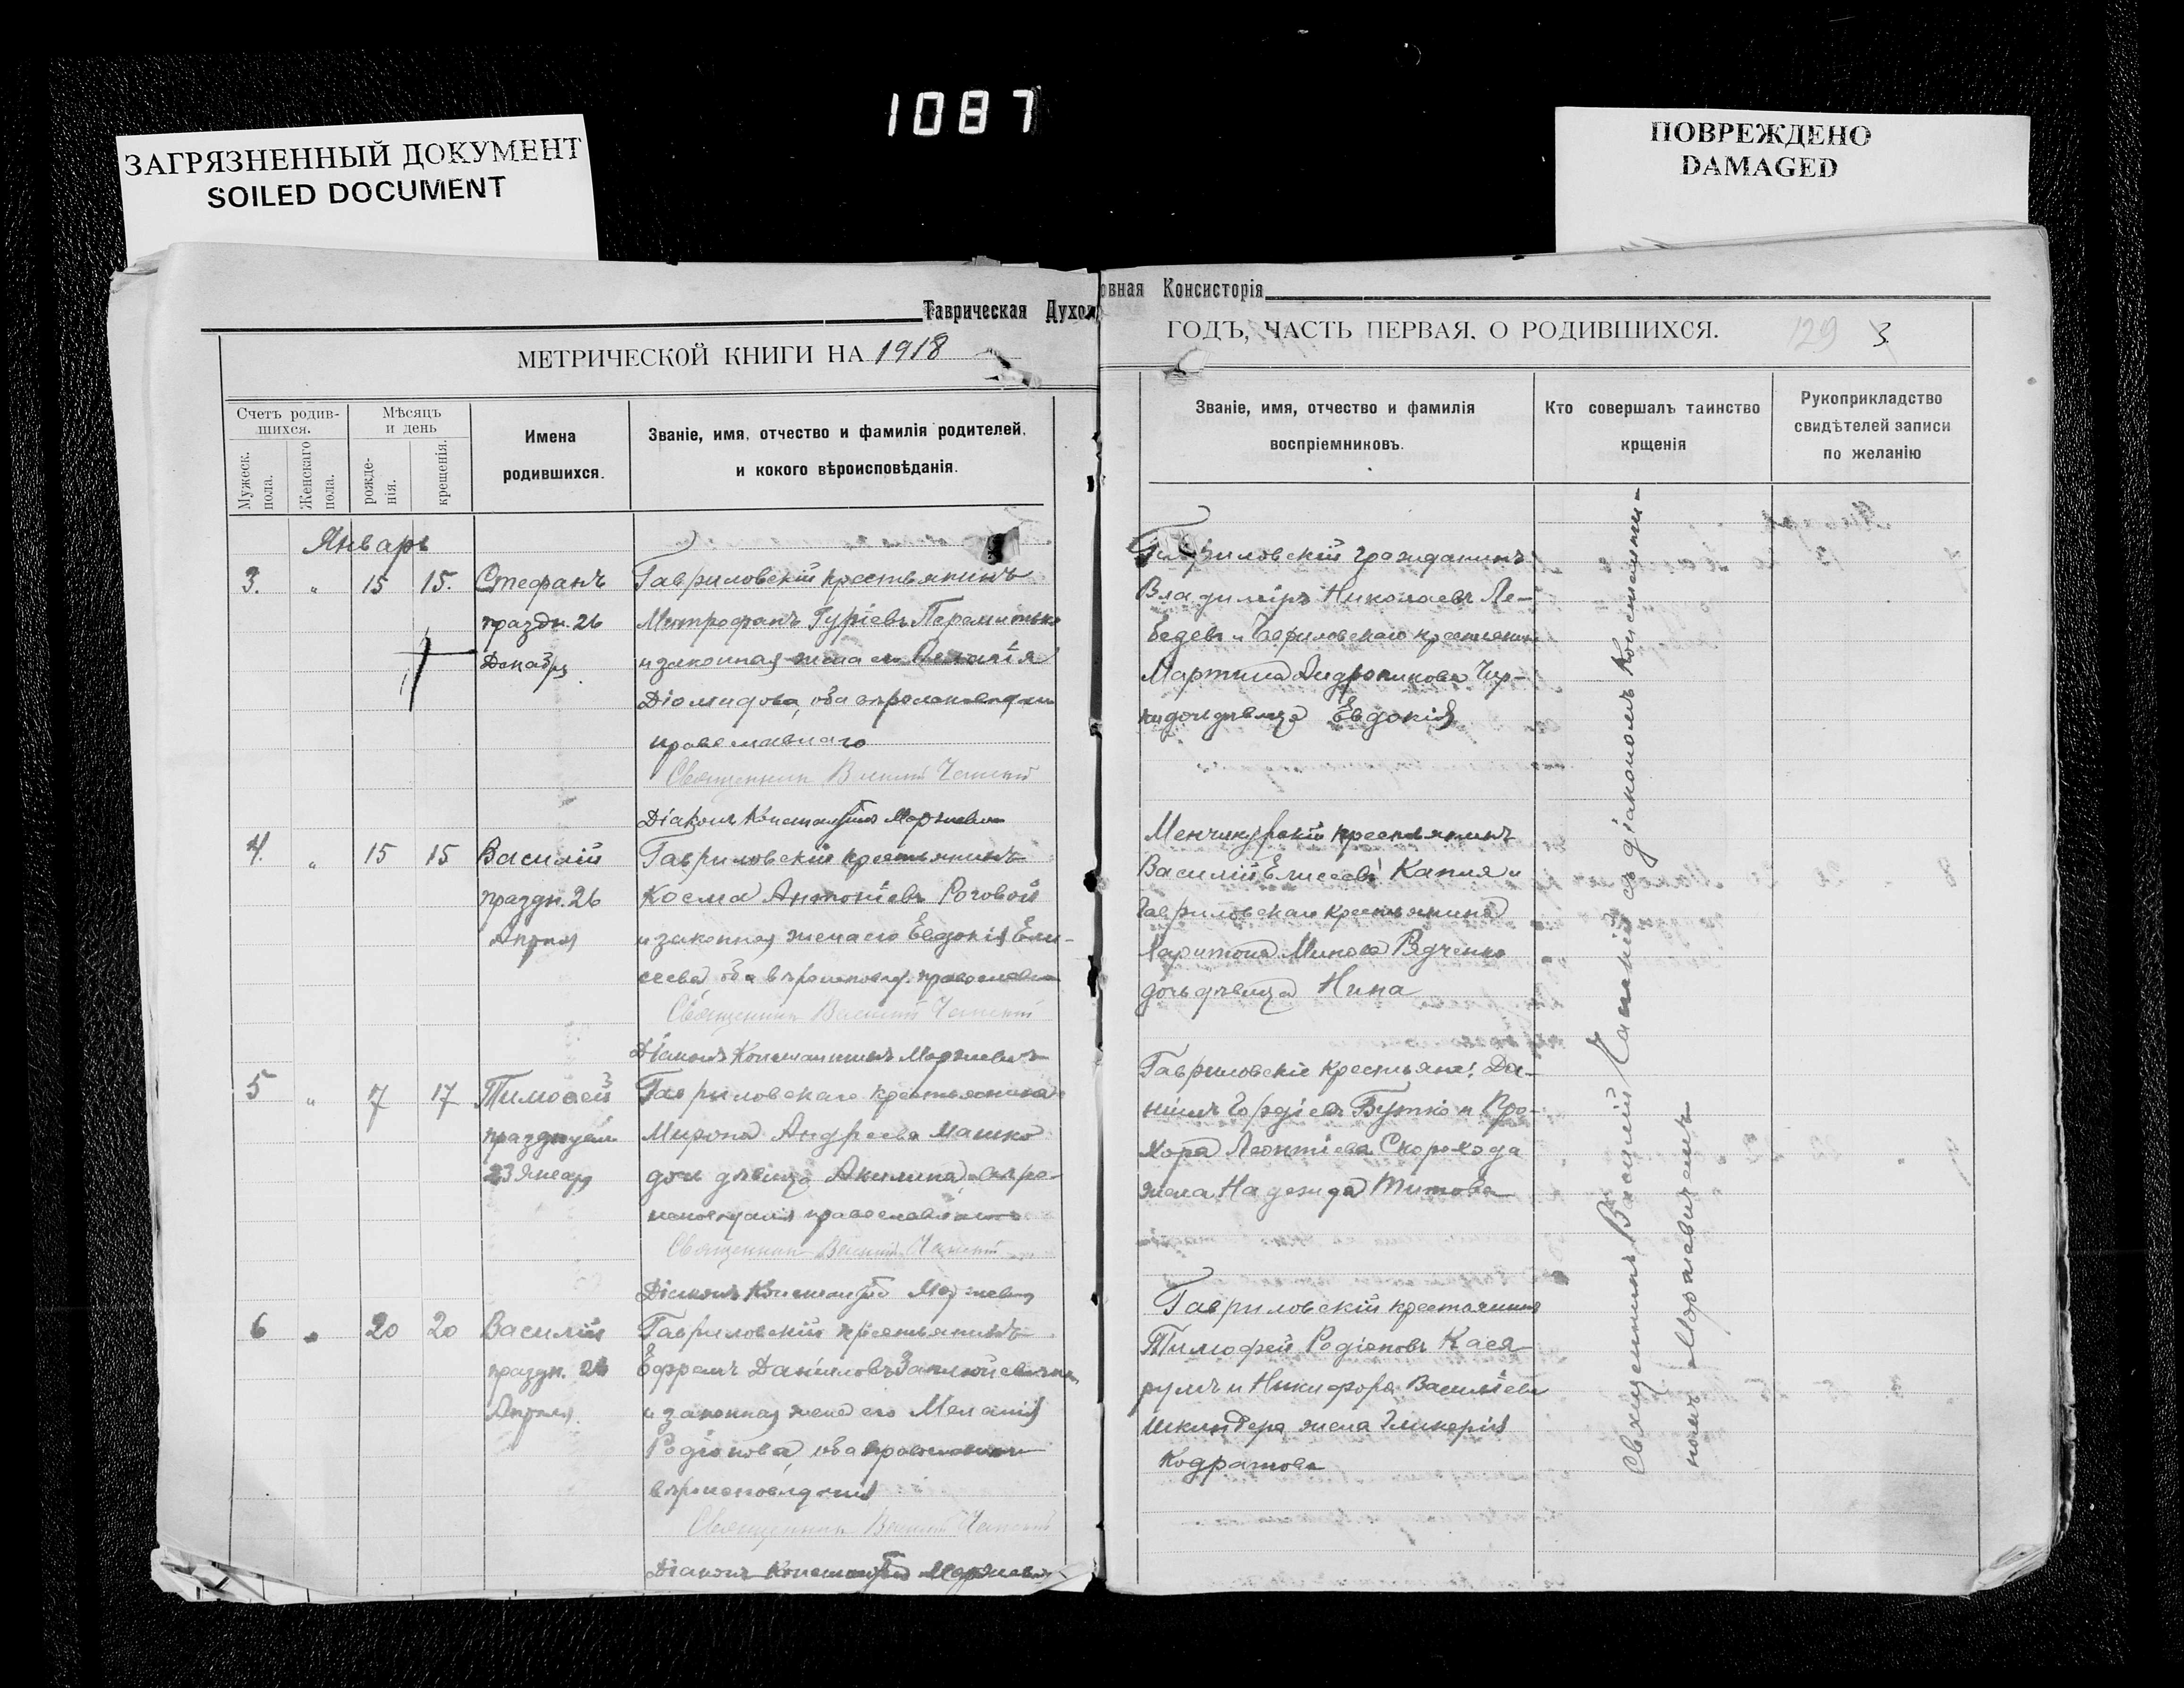 1087
ЗАГРЯЗНЕННЫЙ ДОКУМЕНТ
SOILED DOCUMENT
ПОВРЕЖДЕНО
DAMAGED
Таврическая Духовная Консисторія
МЕТРИЧЕСКОЙ КНИГИ НА 1918
ГОДЪ, ЧАСТЬ ПЕРВАЯ, О РОДИВШИХСЯ.
129 3
Счетъ родив-
шихся.
Мужеск.
пола.
Женскаго
пола.
Мѣсяцъ
и день
рожде-
нія.
крещенія.
Имена
родившихся.
Званіе, имя, отчество и фамилія родителей,
и кокого вѣроисповѣданія.
Званіе, имя, отчество и фамилія
воспріемниковъ.
Кто совершалъ таинство
крщенія
Рукоприкладство
свидѣтелей записи
по желанію
Январь
3. " 15 15.
Стефанъ
праздн. 26
Декабр
Гавриловскій крестьянинъ
Митрофанъ Гуріевъ
и законная жена его
Діомидова, оба
православнаго
Священникъ Василій Чапскій
Діаконъ Константинъ
Гавриловскій гражданинъ
Владиміръ Николаевъ Ле-
бедевъ и Гавриловскаго крестьянина
Мартина Андроникова
дочь дѣвица Евдокія
4. " 15 15
Василій
праздн. 26
Апрѣля
Гавриловскій крестьянинъ
Косма Антоніевъ Роговой
и законная жена его Евдокія Ели-
сеева оба вѣроисповѣд. православн
Священникъ Василій
Діаконъ Константинъ
Менчикурскій крестьянинъ
Василій Елисеевъ Капля и
Гавриловскаго крестьянина
Харитона Минова
дочь дѣвица Нина
5 " 7 17
Тимоѳей
празднуем
23 Январ
Гавриловскаго крестьянина
Мирона Андреева Машко
дочь дѣвица Акилина, вѣро-
исповѣданія православнаго
Священникъ Василій
Діаконъ Константинъ
Гавриловскіе крестьяне: Да-
ніилъ Гордіевъ Бутко и Про-
хора Леонтіева Скорохода
жена Надежда Титова
6 " 20 20
Василій
праздн. 26
Апрѣля.
Гавриловскій крестьянинъ
Ефремъ Даніиловъ
и законная жена его Меланія
Родіонова, оба православнаго
вѣроисповѣданія
Священникъ Василій
Діаконъ Константинъ
Гавриловскій крестьянинъ
Тимофей Родіоновъ Кася
румъ и Никифора Васильева
Шкиндера жена Гликерія
Кодратова
Священникъ Василій Чапскій съ діакономъ Константи-
номъ